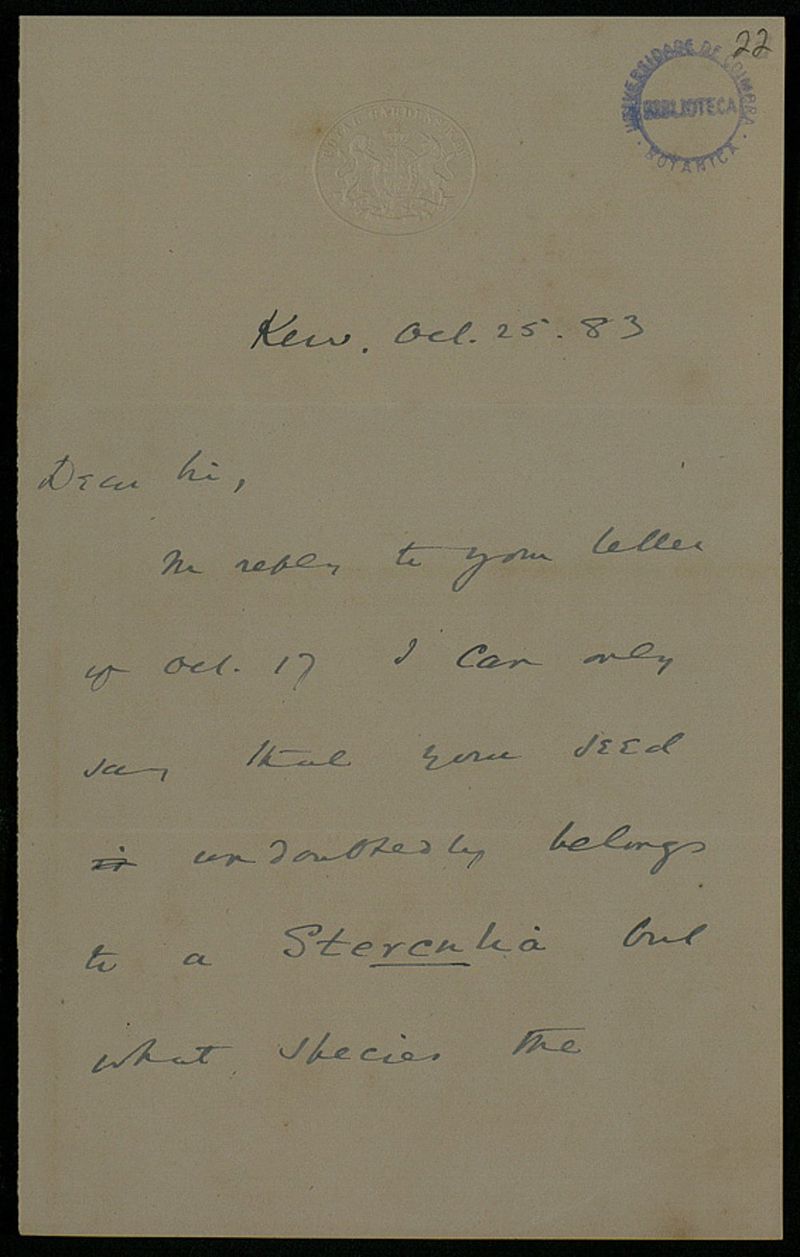 22
UNIVERSIDADE DE COIMBRA
BIBLIOTECA
BOTANICA
ROYAL GARDENS KEW
Kew. Oct. 25. 83
Dear Sir,
In reply to your letter
of Oct. 17 I can only
say that your seed
is undoubtedly belongs
to a Sterculia but
what species the